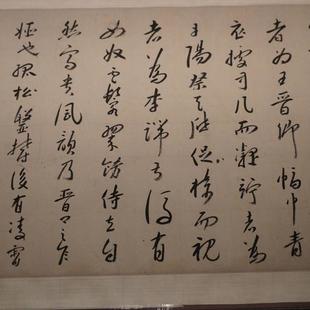 者為王晉卿幅巾青
衣據方几而凝竚者為
丹陽蔡天啓捉椅而視
者為李端叔後有
女奴雲鬟翠飾侍立自
然富貴風韻乃晉卿之家
姬也孤松盤鬱後有凌霄